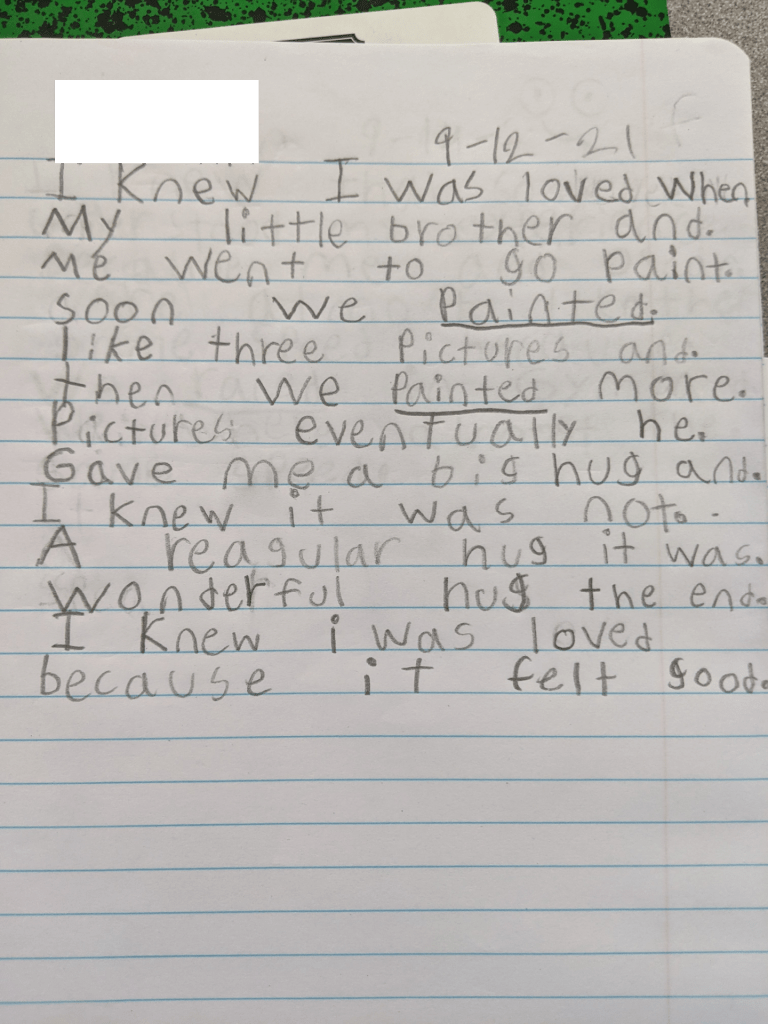 9-12-21
I Knew I was loved when
My little brother and.
me went to go paint.
soon we Painted.
like three Pictures and.
then we Painted more.
Pictures eventually he.
Gave me a big hug and.
I knew it was not.
A reagular hug it was.
wonderful hug the end.
I Knew i was loved
because it felt good.